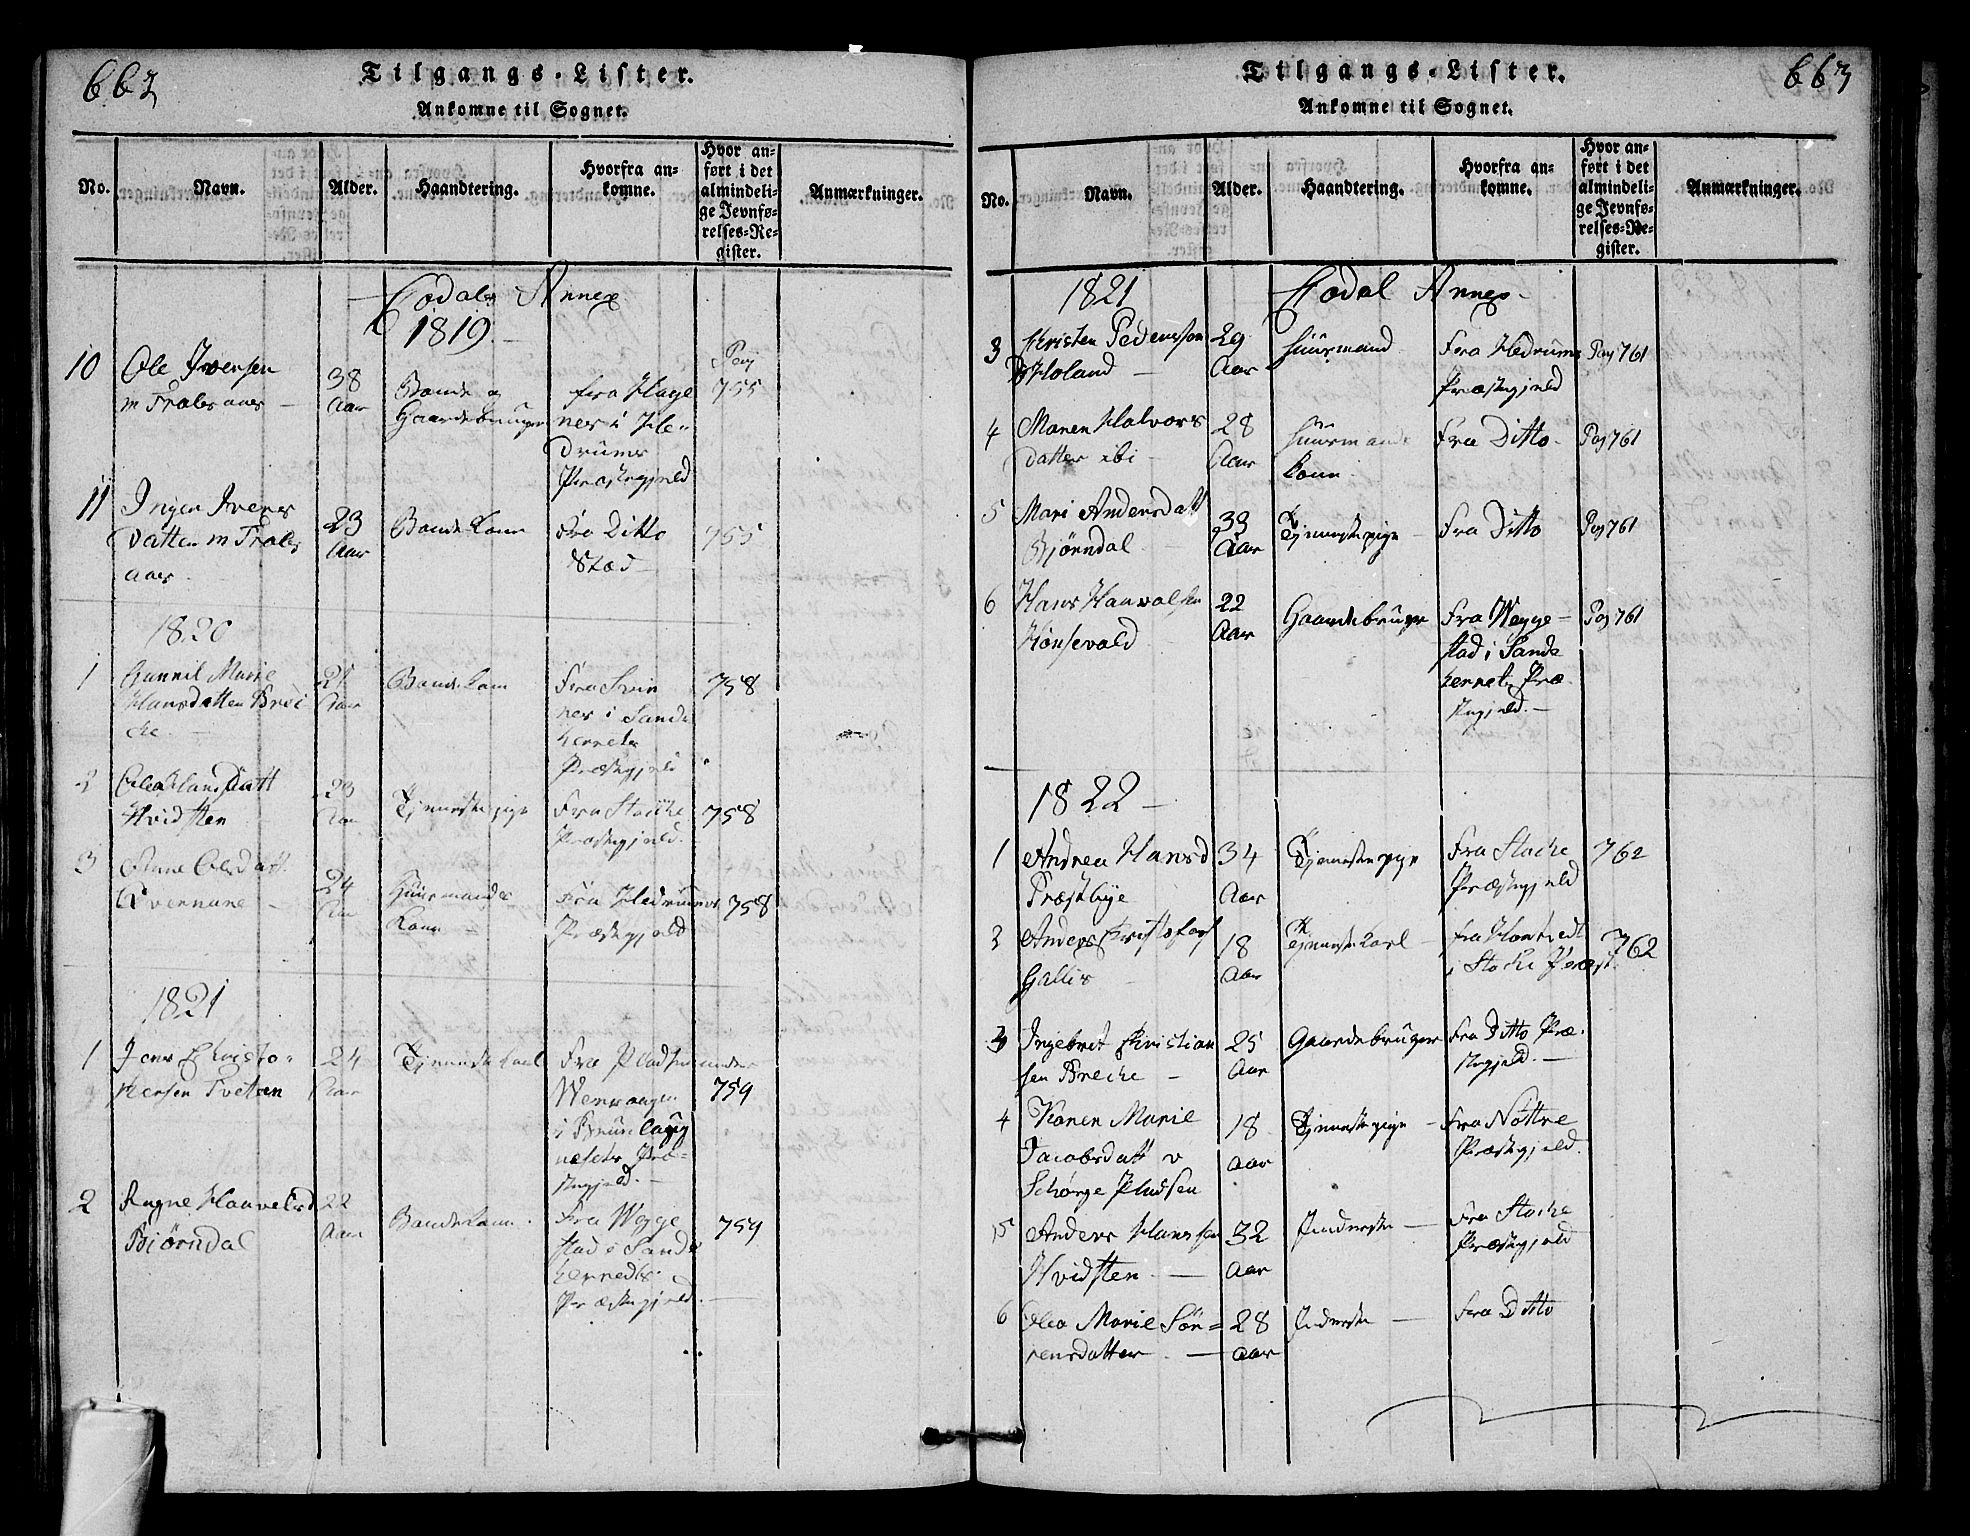 662
Tilgangs-Lister.
Ankomne til Sognet.
No. Navn. Alder. Haandtering. Hvorfra ankomne. Hvor anført i det almindelige Jevnførelses-Register. Anmærkninger.
Annex
1819.
10 Ole Iversen
38 Aar
Bonde og
Gaardebruger
fra Hage
ner i He-
drums
Præstegjeld
Pag
755
11 Inger Ivers
Datter m
aaes
23
Aar
Bondekone
fra Ditto
Sted
755
1820
1 Gunnil Marie
Hansdatter
21
Aar
Bondekone
Fra
ner i Sande
herreds
Præstegjeld
758
2 Olea Hansdatt
Hvidsten
23
Aar
Tjenestepige
Fra Stocke
Præstegjeld.
758
3 Anne Olesdatt.
24
Aar
Huusmands
Kone
Fra Hedrums
Præstegjeld
758
1821
1 Jens Christo-
phersen Tveten
24
Aar
Tjenestekarl
Fra Pladsen under
i Brunlaug
næsets Præ-
stegjeld.
759
2 Haavelsd
Bjørndal
22
Aar
Bondekone.
Fra Wegge
stad i Sande
herreds
Præstegjeld.
759
663
Tilgangs-Lister.
Ankomne til Sognet.
No. Navn. Alder. Haandtering. Hvorfra ankomne. Hvor anført i det almindelige Jevnførelses-Register. Anmærkninger.
1821
Annex
3 Kristen Pedersson
29
Aar
Huusmand
Fra Hedrums
Præstegjeld
Pag 761
4 Maren Halvors
datter ibi
28
Aar
Huusmands
kone
Fra Ditto
Pag 761
5 Mari Andersdatt
Bjørndal
33
Aar
Tjenestepige
Fra Ditto
Pag 761
6 Hans Haavalsen
Hønsevald
22
Aar
Gaardebruger
Fra Wegge-
stad i Sande
herrets Præ
stegjeld.
Pag 761
1822
1 Andrea Hansd
Præstbye
34
Aar
Tjenestepige
Fra Stocke
Præstegjeld
762
2 Anders Kristofers
Gallis
18
Aar
Tjenestekarl
i Stocke Præst.
762
3 Ingebret Kristian
sen Breche
25
Aar
Gaardebruger
Fra Ditto Præ-
stegjeld.
4 Karen Marie
Jacobsdatt v
Schørge Pladsen
18
Aar
Tjenestepige
Fra Nøttrøe
Præstegjeld.
5 Anders Hanssen
Hvidsten
32
Aar
Inderste
Fra Stocke
Præstegjeld
6 Olea Marie Sør-
rensdatter
28
Aar
Inderste
Fra Ditto